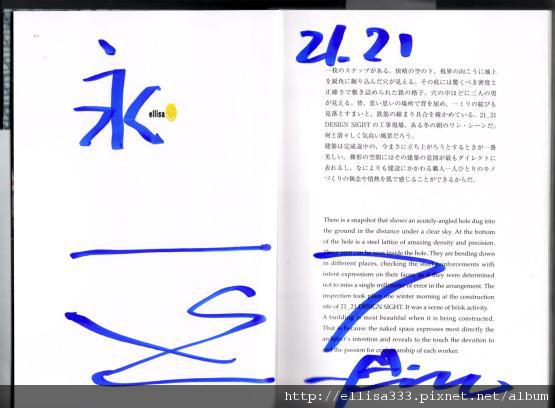 永
ellisa
21_21
一枚のスナップがある。快晴の空の下、視界の向こうに地上
を鋭角に掘り込んだ穴が見える。その底には驚くべき密度と
正確さで敷き詰められた鉄の格子。穴の中ほどに三人の男
が見える。皆、思い思いの場所で背を屈め、一ミリの綻びも
見落とすまいと、鉄筋の締まり具合を確かめている。21_21
DESIGN SIGHTの工事現場、ある冬の朝のワン・シーンだ。
何と清々しく気高い風景だろう。
建築は完成途中の、今まさに立ち上がろうとするときが一番
美しい。裸形の空間にはその建築の意図が最もダイレクトに
表れるし、なによりも建設にかかわる職人一人ひとりのモノ
づくりの執念や情熱を肌で感じることができるからだ。
There is a snapshot that shows an acutely-angled hole dug into
the ground in the distance under a clear sky. At the bottom
of the hole is a steel lattice of amazing density and precision.
Three men can be seen inside the hole. They are bending down
in different places, checking the steel reinforcements with
intent expressions on their faces, as if they were determined
not to miss a single millimeter of error in the arrangement. The
inspection took place one winter morning at the construction
site of 21_21 DESIGN SIGHT. It was a scene of brisk activity.
A building is most beautiful when it is being constructed.
That is because the naked space expresses most directly the
architect's intention and reveals to the touch the devotion to
and the passion for craftsmanship of each worker.
http://ellisa333.pixnet.net/album